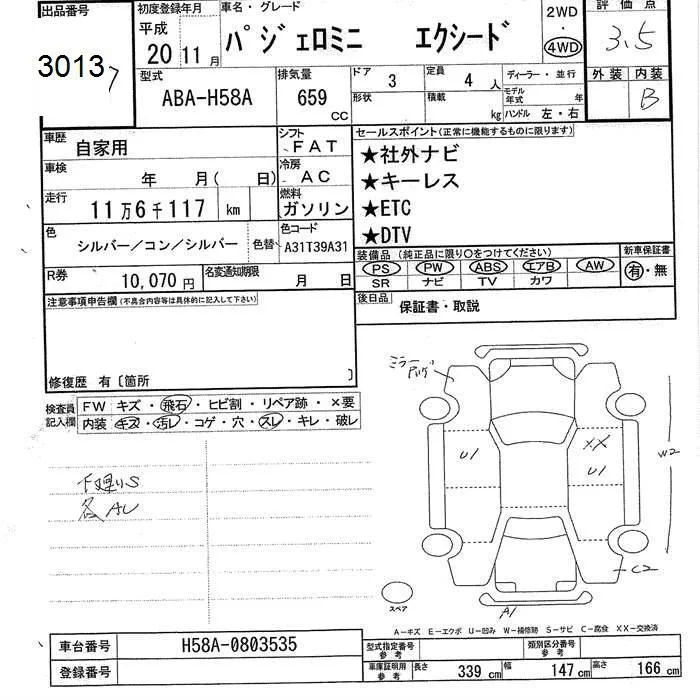 出品番号
3013
7
初度登録年月
平成
20 11月
車名・グレード
パジェロミニ エクシード
2WD
・
4WD
評価点
3.5
型式
ABA-H58A
排気量
659
CC
ドア
3
定員
4 人
形状
積載
kg
ディーラー・並行
モデル年式 年
ハンドル 左・右
外装 内装
B
車歴
自家用
シフト
FAT
車検
年 月( 日)
冷房
AC
走行
11万6千117 km
燃料
ガソリン
色
シルバー/コン/シルバー
色替
色コード
A31T39A31
R券
10,070円
名変通知期限
月 日
セールスポイント(正常に機能するものに限ります)
★社外ナビ
★キーレス
★ETC
★DTV
装備品 (純正品に限り○をつけてください)
PS PW ABS エアB AW
SR ナビ TV カワ
新車保証書
有・無
後日品
保証書・取説
注意事項申告欄(不具合内容等は具体的に記入して下さい)
修復歴 有〔箇所 〕
検査員記入欄
FW キズ・飛石・ヒビ割・リペア跡・×要
内装 キズ・汚レ・コゲ・穴・スレ・キレ・破レ
下廻りS
各AU
ミラー
U1
XX
U1
W2
C2
A1
スペア
A-キズ E-エクボ U-凹み W-補修跡 S-サビ C-腐食 XX-交換済
車台番号
H58A-0803535
登録番号
型式指定番号
参考
類別区分番号
参考
車庫証明用
参考
長さ 339 cm 幅 147 cm 高さ 166 cm